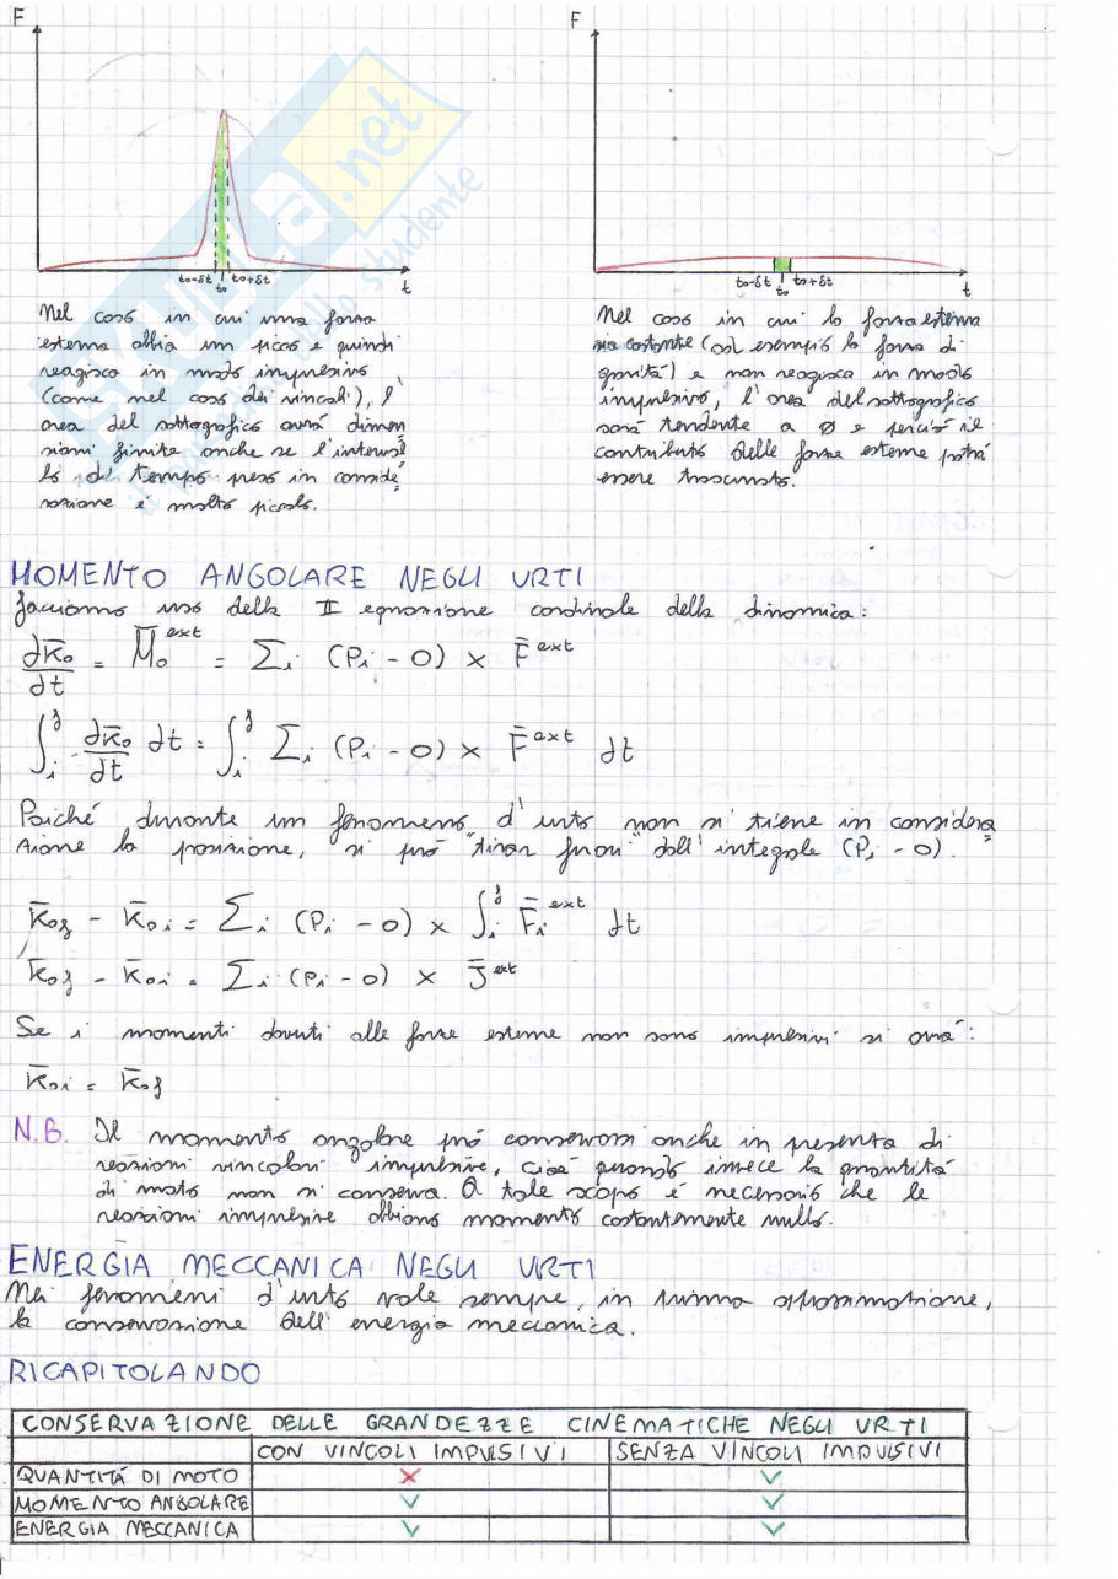 F
F
t₀-δt t₀+δt
t₀
t
t₀-δt t₀+δt
t₀
t
Nel caso in cui una forza
esterna abbia un picco e quindi
reagisca in modo impulsivo
(come nel caso dei vincoli), l'
area del sottografico avrà dimen
sioni finite anche se l'interval
lo di tempo preso in conside
razione è molto piccolo.
Nel caso in cui la forza esterna
sia costante (ad esempio la forza di
gravità) e non reagisca in modo
impulsivo, l'area del sottografico
sarà tendente a ø e perciò il
contributo delle forze esterne potrà
essere trascurato.
MOMENTO ANGOLARE NEGLI URTI
Facciamo uso della II equazione cardinale della dinamica:
dK̄₀/dt = M̄₀ᵉˣᵗ = Σᵢ (Pᵢ - O) × F̄ᵉˣᵗ
∫ᵢᶠ dK̄₀/dt dt = ∫ᵢᶠ Σᵢ (Pᵢ - O) × F̄ᵉˣᵗ dt
Poiché durante un fenomeno d'urto non si tiene in considera
zione la posizione, si può "tirar fuori" dall'integrale (Pᵢ - O).
K̄₀f - K̄₀ᵢ = Σᵢ (Pᵢ - O) × ∫ᵢᶠ F̄ᵢᵉˣᵗ dt
K̄₀f - K̄₀ᵢ = Σᵢ (Pᵢ - O) × J̄ᵉˣᵗ
Se i momenti dovuti alle forze esterne non sono impulsivi si avrà:
K̄₀ᵢ = K̄₀f
N.B. Il momento angolare può conservarsi anche in presenza di
reazioni vincolari impulsive, cioè quando invece la quantità
di moto non si conserva. A tale scopo è necessario che le
reazioni impulsive abbiano momento costantemente nullo.
ENERGIA MECCANICA NEGLI URTI
Nei fenomeni d'urto vale sempre, in prima approssimazione,
la conservazione dell'energia meccanica.
RICAPITOLANDO
CONSERVAZIONE DELLE GRANDEZZE CINEMATICHE NEGLI URTI
CON VINCOLI IMPULSIVI SENZA VINCOLI IMPULSIVI
QUANTITÁ DI MOTO ✗ ✓
MOMENTO ANGOLARE ✓ ✓
ENERGIA MECCANICA ✓ ✓